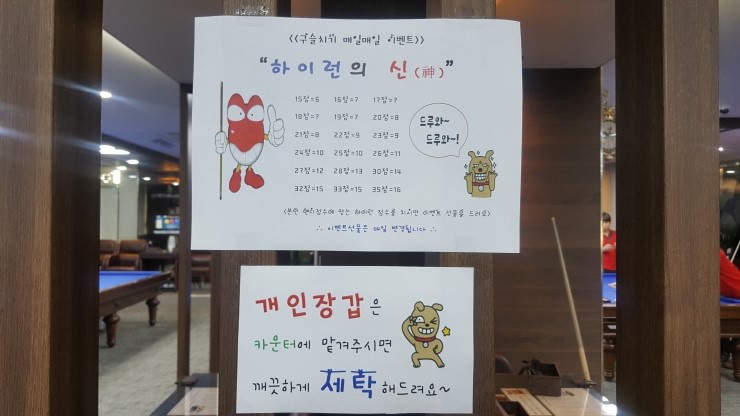 <<구슬치기 매일매일 이벤트>>
“하이런의 신(神)”
15점=6 16점=7 17점=7
18점=7 19점=7 20점=8
21점=8 22점=9 23점=9
24점=10 25점=10 26점=11
27점=12 28점=13 30점=14
32점=15 33점=15 35점=16
드루와~
드루와~!
(본인 핸디점수에 맞는 하이런 점수를 치시면 이벤트 선물을 드려요)
∴ 이벤트선물은 매일 변경됩니다 ∴
개인장갑은
카운터에 맡겨주시면
깨끗하게 세탁해드려요~